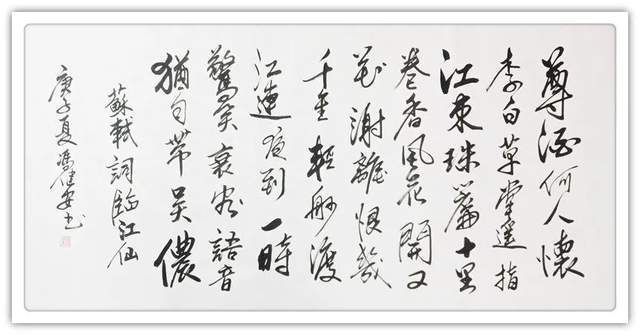 尊酒何人懷
李白草堂遥指
江東珠簾十里
卷香風花開又
花謝離恨幾
千重輕舸渡
江連夜到一時
驚笑衰容語音
猶自帶吴儂
蘇軾詞臨江仙
庚子夏馮安书